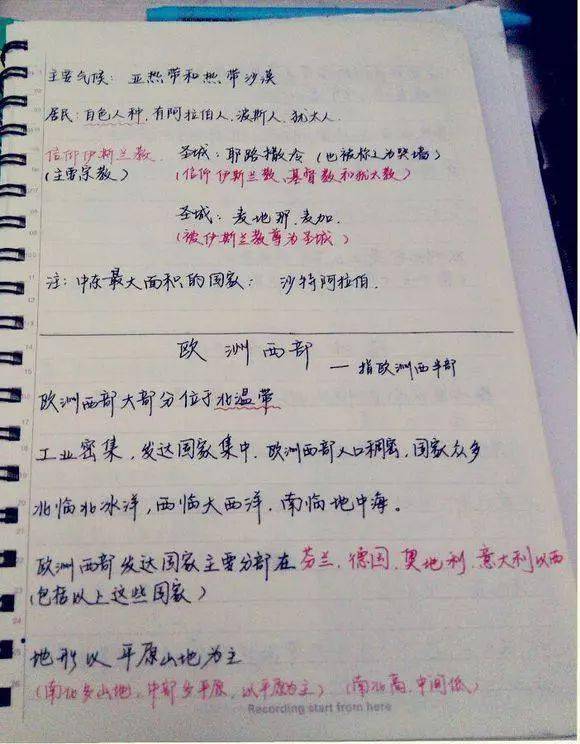 主要气候：亚热带和热带沙漠
居民：白色人种，有阿拉伯人、波斯人、犹太人.
信仰伊斯兰教 圣城：耶路撒冷（也被称之为哭墙）
（主要宗教） （信仰伊斯兰教、基督教和犹太教）
圣城：麦地那、麦加.
（被伊斯兰教尊为圣城）
注：中东最大面积的国家： 沙特阿拉伯.
欧洲西部
— 指欧洲西半部
欧洲西部大部分位于北温带
工业密集，发达国家集中.欧洲西部人口稠密，国家众多
北临北冰洋，西临大西洋.南临地中海。
欧洲西部发达国家主要分部在芬兰、德国、奥地利、意大利以西
（包括以上这些国家）
地形以平原山地为主
（南北多山地，中部多平原，以平原为主）（南北高，中间低）
Recording start from here